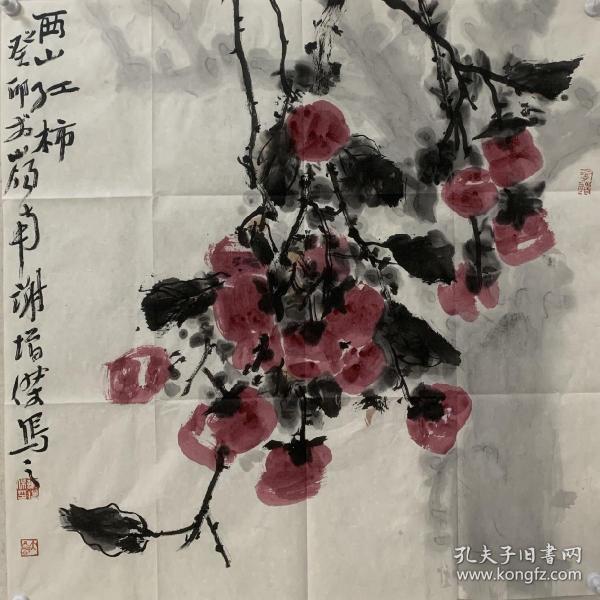 西山红柿
癸卯于岭南谢增杰写之
孔夫子旧书网
www.kongfz.com